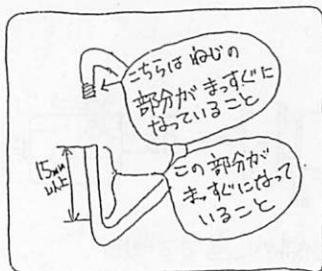 こちらは ねじの
部分が まっすぐに
なっていること
15mm
以上
この部分が
まっすぐになって
いること